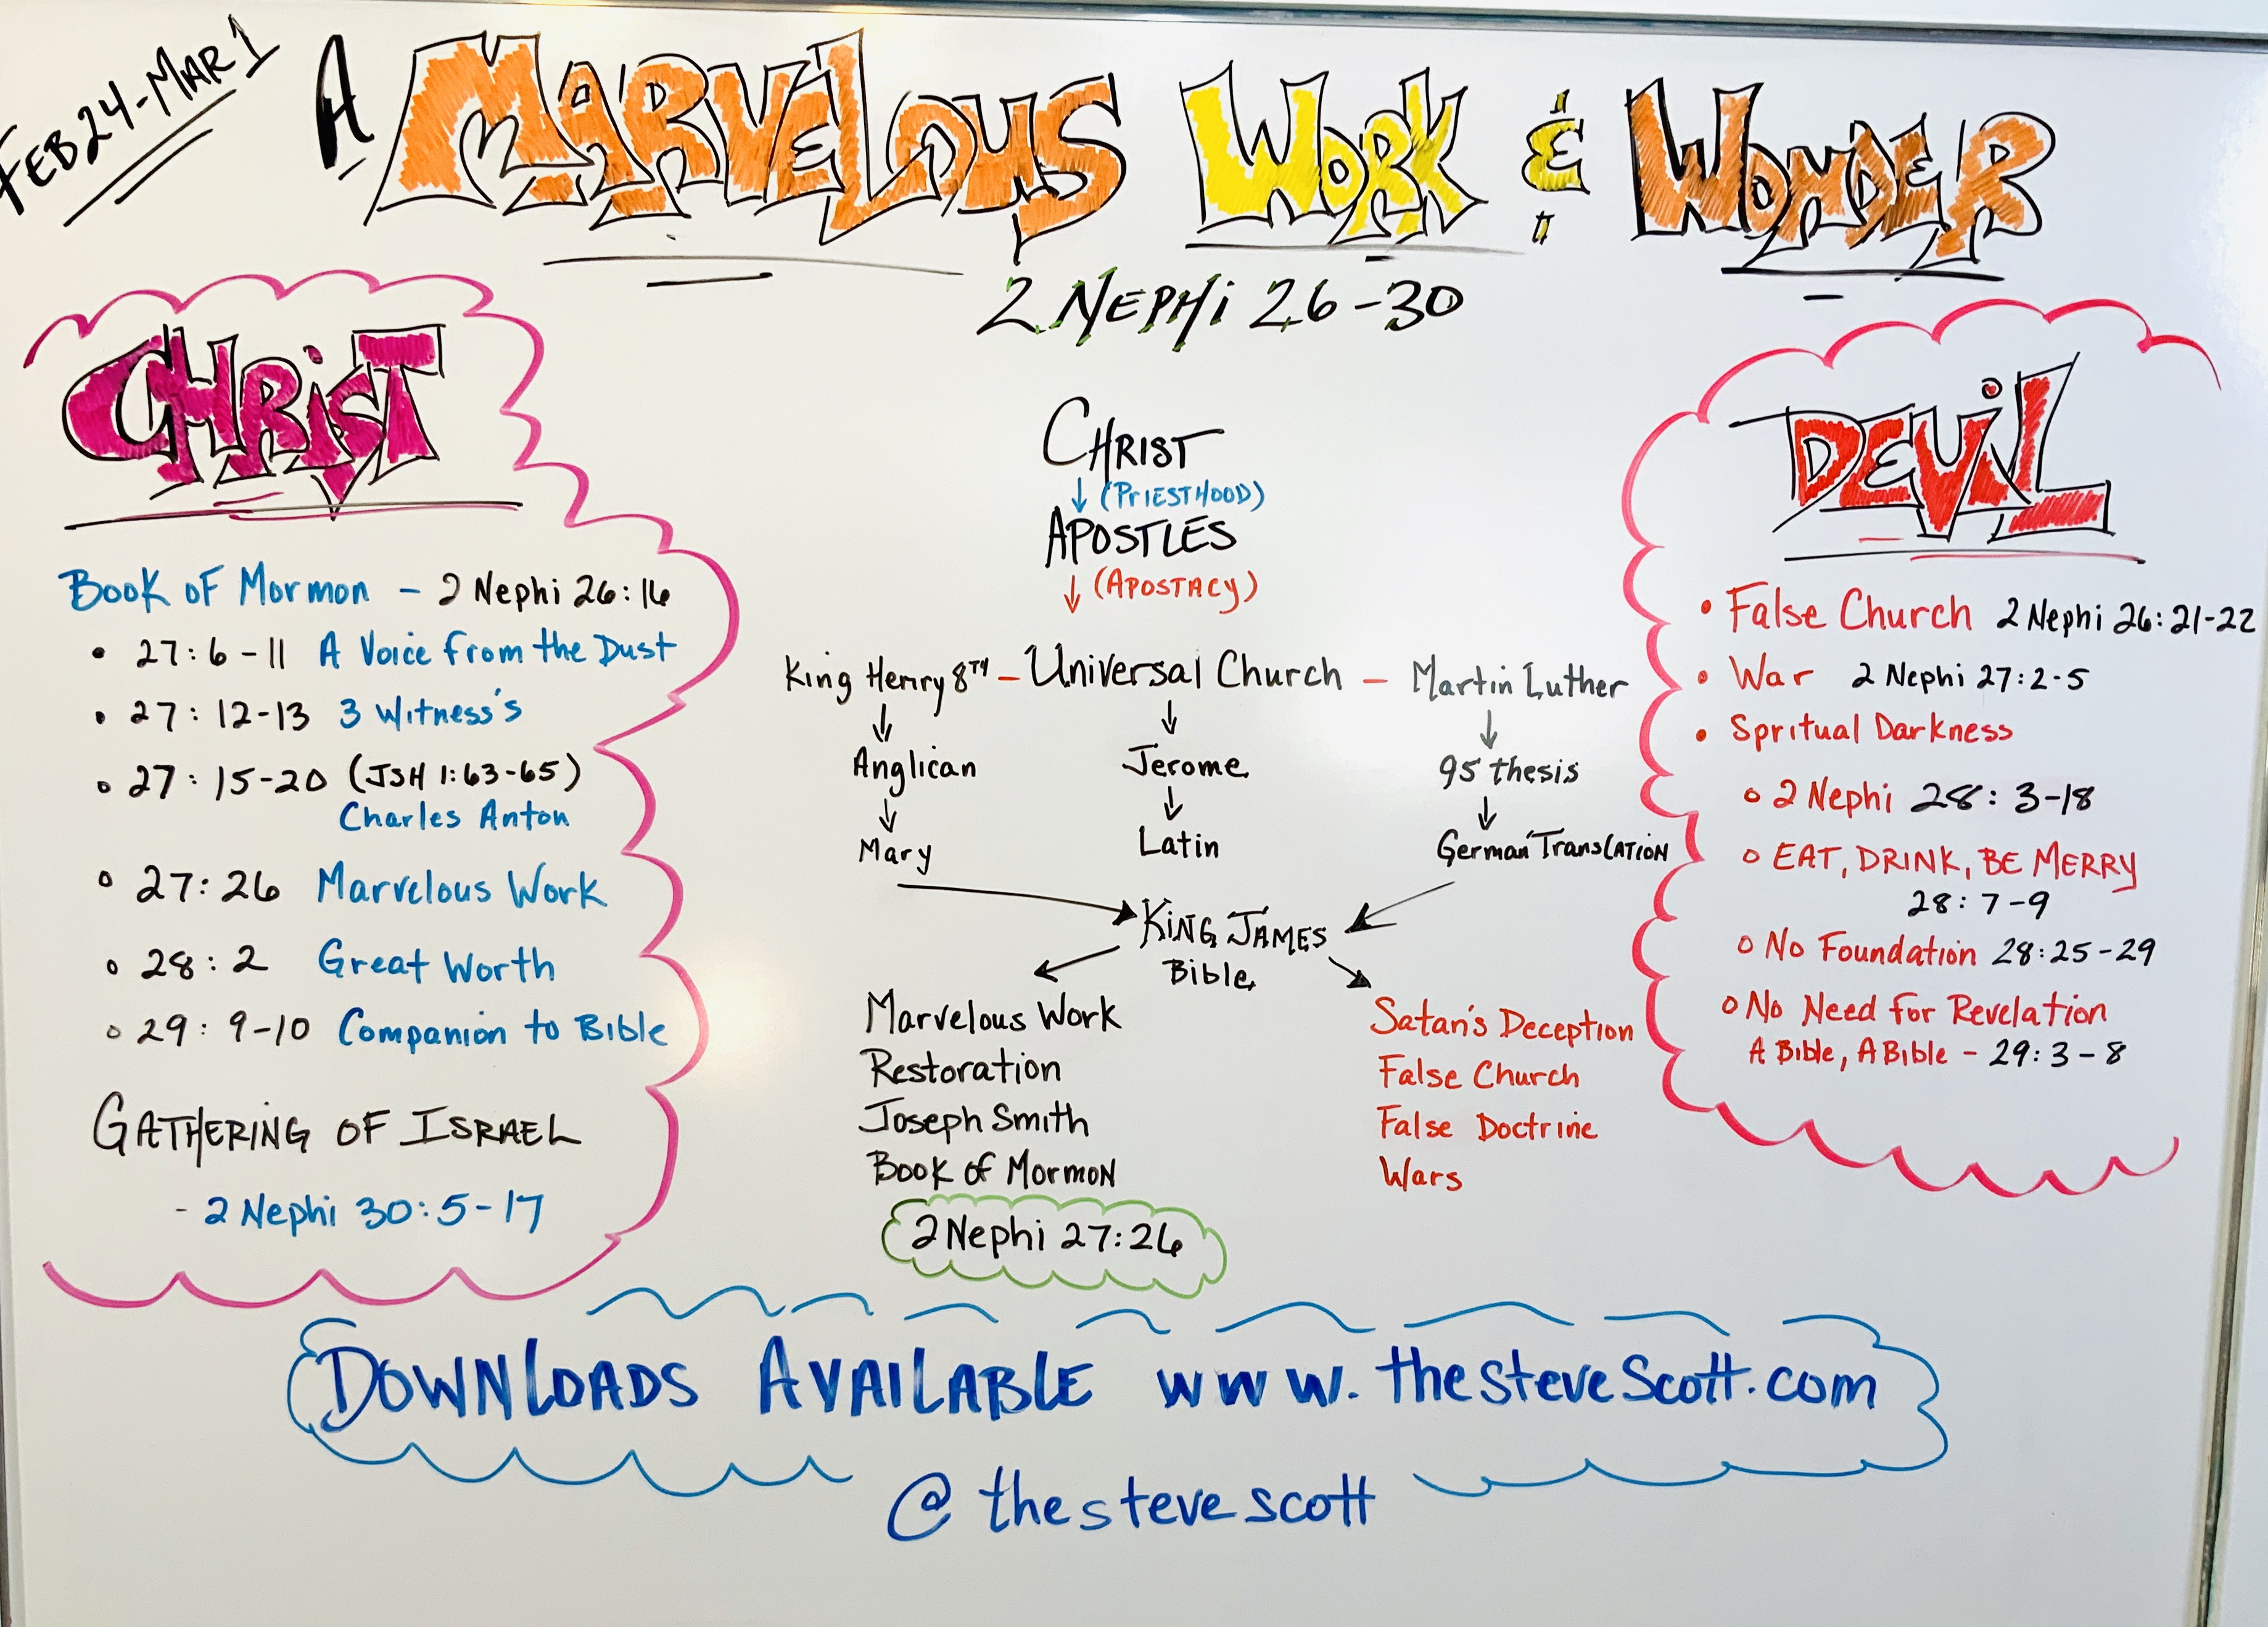 FEB 24-MAR 1
A MARVELOUS WORK & WONDER
2 NEPHi 26-30
CHRiST
Book of Mormon - 2 Nephi 26:16
• 27:6-11 A Voice from the Dust
• 27: 12-13 3 Witness's
• 27: 15-20 (JSH 1:63-65)
Charles Anton
• 27:26 Marvelous Work
• 28:2 Great Worth
• 29: 9-10 Companion to Bible
GATHERING OF ISRAEL
- 2 Nephi 30:5-17
CHRIST
↓ (PriESTHOOD)
APOSTLES
↓ (APOSTACY)
King Henry 8TH - Universal Church - Martin Luther
↓ ↓ ↓
Anglican Jerome 95 thesis
↓ ↓ ↓
Mary Latin German TransLATION
KiNG JAMES
Bible
Marvelous Work
Restoration
Joseph Smith
Book of Mormon
2 Nephi 27:26
Satan's Deception
False Church
False Doctrine
Wars
DEViL
• False Church 2 Nephi 26:21-22
• War 2 Nephi 27:2-5
• Spritual Darkness
o 2 Nephi 28: 3-18
o EAT, DRINK, BE MERRY
28: 7-9
o No Foundation 28:25-29
o No Need for Revelation
A Bible, A Bible - 29:3-8
DOWNLOADS AVAILABLE www.thesteveScott.com
@thestevescott